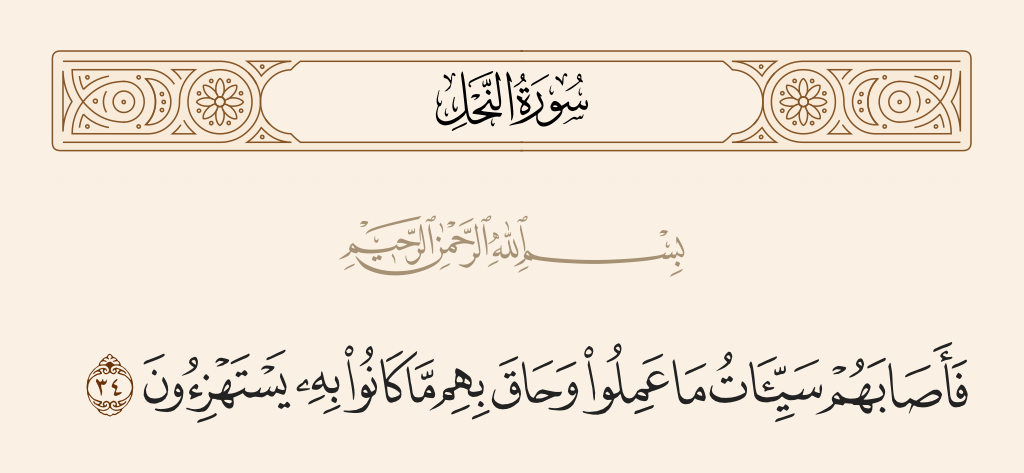 سُورَةُ النَّحْلِ
بِسْمِ ٱللَّهِ ٱلرَّحْمَٰنِ ٱلرَّحِيمِ
فَأَصَابَهُمْ سَيِّـَٔاتُ مَا عَمِلُوا۟ وَحَاقَ بِهِم مَّا كَانُوا۟ بِهِۦ يَسْتَهْزِءُونَ ٣٤